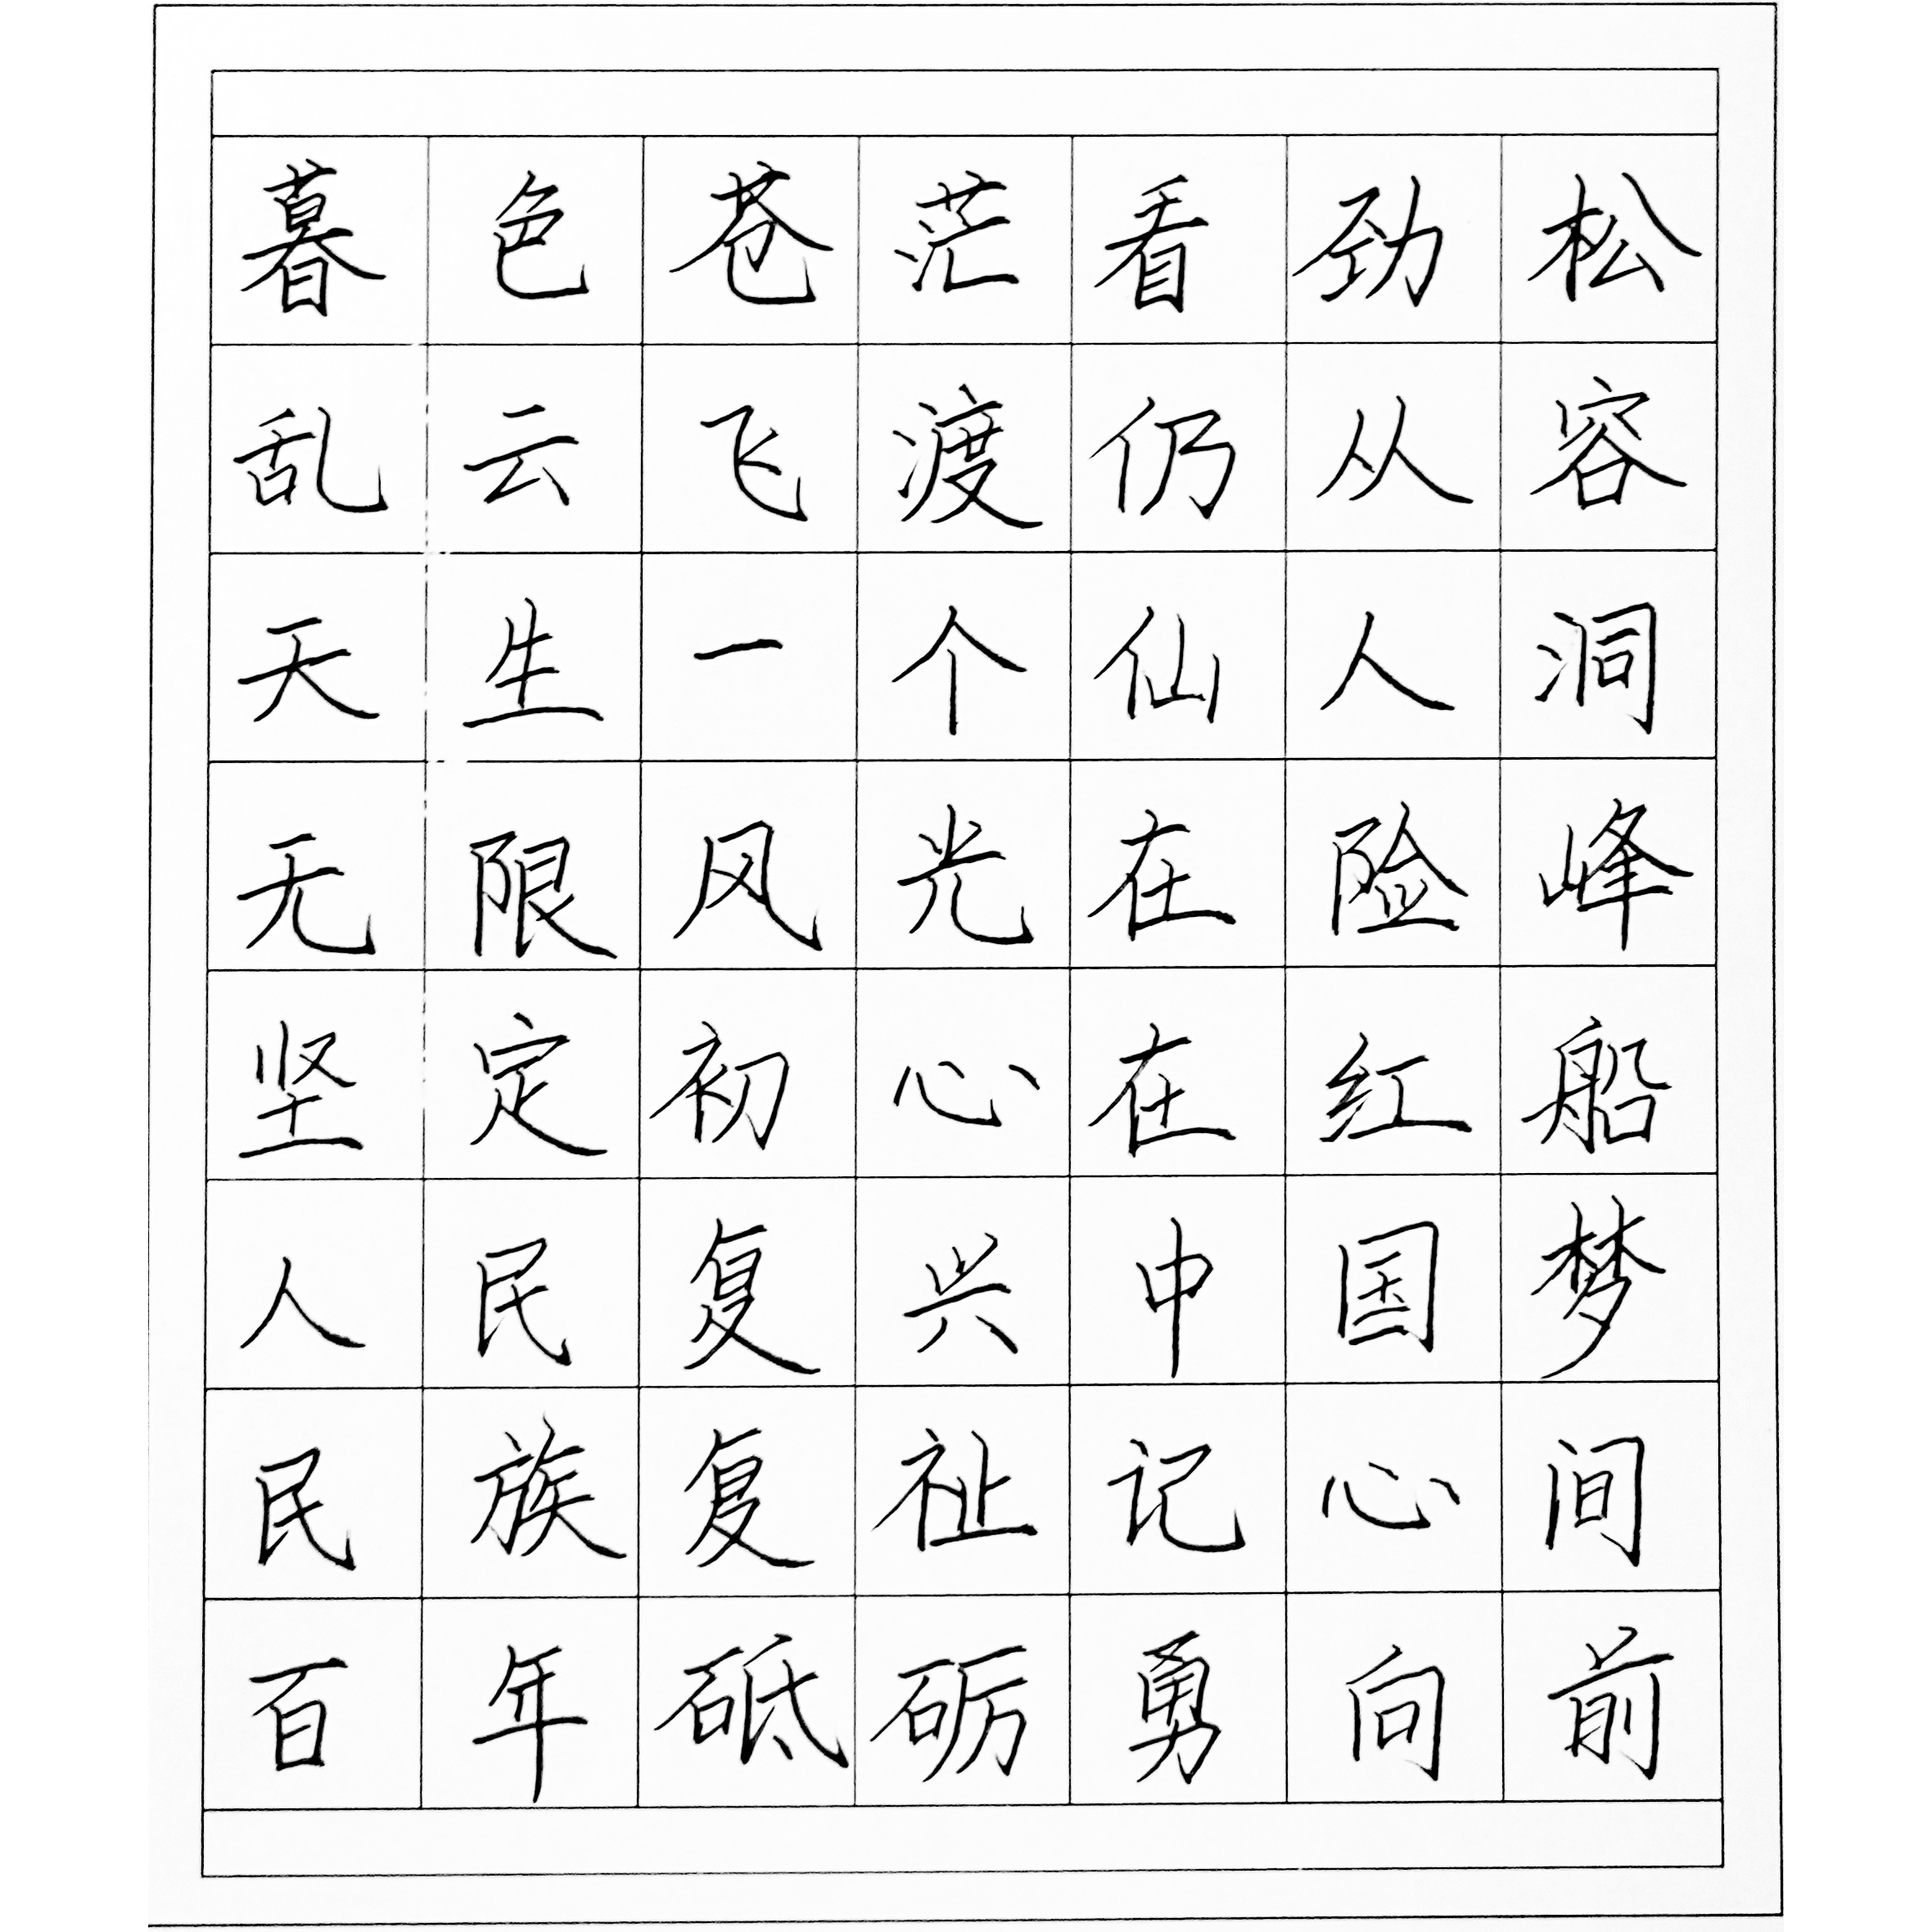 暮色苍茫看劲松
乱云飞渡仍从容
天生一个仙人洞
无限风光在险峰
坚定初心在红船
人民复兴中国梦
民族复祉记心间
百年砥砺勇向前